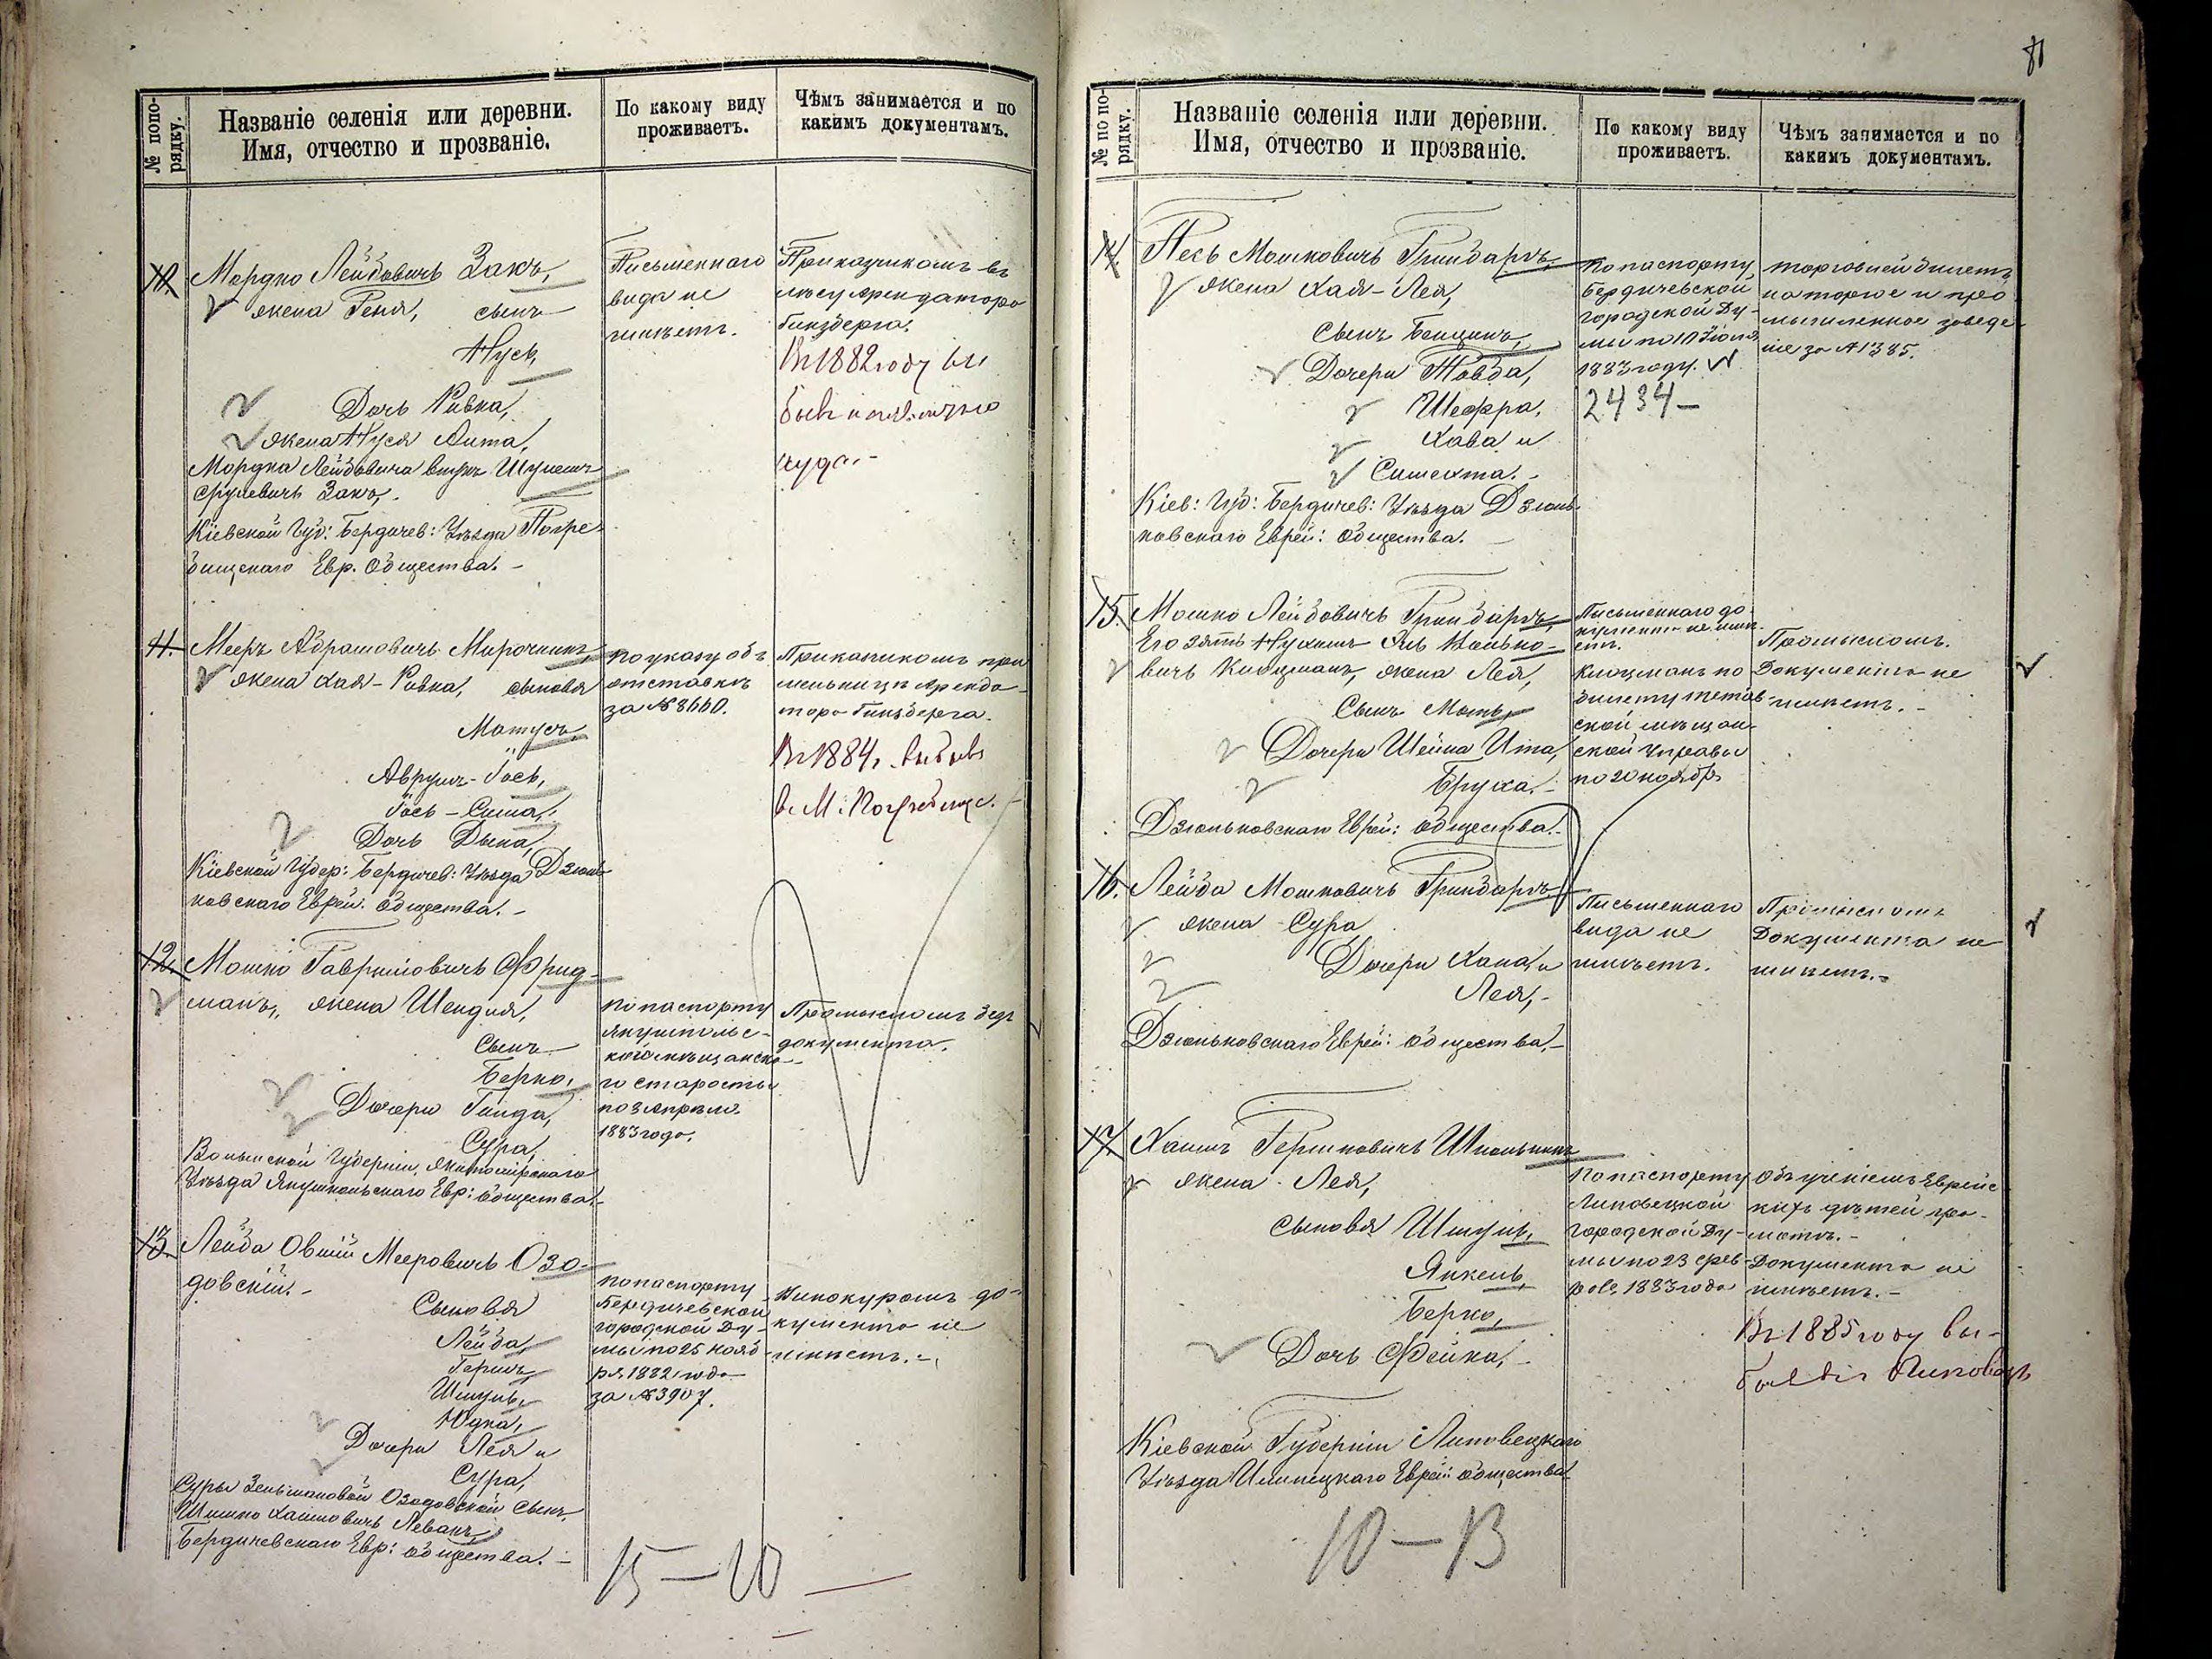 № попо-
рядку.
Названіе селенія или деревни.
Имя, отчество и прозваніе.
По какому виду
проживаетъ.
Чѣмъ занимается и по
какимъ документамъ.
10.
Мордко Лейбовичъ Закъ,
жена Геня, сынъ
Нусь,
Дочь Ривка,
жена Нуся Аита,
Мордка Лейбовича внукъ Шулемъ
Срулевичъ Закъ,
Кіевской Губ: Бердичев: Уѣзда Погре-
бищскаго Евр. Общества. -
Письменнаго
вида не
имѣетъ.
Приказчикомъ въ
лѣсу Арендатора
Гинзберга.
Въ 1882 году вы
былъ
куда -
11.
Мееръ Абрамовичъ Мирочникъ,
жена Хая-Ривка, сыновья
Матусъ,
Аврумъ-Іось,
Іось-Сима,
Дочь Дына,
Кіевской Губер: Бердичев: Уѣзда Дзюнь-
ковскаго Еврей: Общества. -
по указу объ
отставкѣ
за № 8660.
Приказчикомъ при
мельницѣ Аренда-
тора Гинзберга.
Въ 1884 г. выбылъ
в. М. Погребище. -
12.
Мошко Гавриловичъ Фрид-
манъ, жена Шендля,
Сынъ
Берко,
Дочери Гинда,
Сура,
Волынской Губерніи, Житомірскаго
Уѣзда Янушпольскаго Евр: Общества. -
по паспорту
Янушпольс-
каго мѣщанска-
го старосты
по 3 Апрѣля
1883 года.
Промысломъ безъ
документа.
13.
Лейба Овшій Мееровичъ Озо-
довскій. -
Сыновья
Лейба,
Гершъ,
Шмуль,
Юдка,
Дочери Лея и
Сура,
Суры Зельмановой Озодовской сынъ
Шимко Хаимовичъ Леванъ,
Бердичевскаго Евр: общества. -
по паспорту
Бердичевской
городской Ду-
мы по 25 нояб-
ря 1882 года
за № 3907.
Винокуромъ до-
кумента не
имѣетъ. -
15 - 10
81
№ по по-
рядку.
Названіе селенія или деревни.
Имя, отчество и прозваніе.
По какому виду
проживаетъ.
Чѣмъ занимается и по
какимъ документамъ.
14.
Песь Мошковичъ Гринбаргъ,
жена Хая-Лея,
Сынъ Бенционъ,
Дочери Товба,
Шефра,
Хава и
Симехта. -
Кіев: Губ: Бердичев: Уѣзда Дзюнь-
ковскаго Еврей: Общества.
по паспорту
Бердичевской
городской Ду-
мы по 10 Іюля
1883 году.
2434 -
торговлей билетъ
на торгое и про
мышленное заведе
ніе за № 1385.
15.
Мошко Лейбовичъ Гринбаргъ,
Его зять Нухимъ Янкель
вичъ Клоцманъ, жена Лея,
Сынъ Моть,
Дочери Шейна Ита,
Бруха. -
Дзюньковскаго Еврей: общества. -
Письменнаго до-
кумента не имѣ-
етъ.
Клоцманъ по
билету
ской мѣщан-
ской Управы
по 20 ноября
Промысломъ.
Документа не
имѣетъ. -
16.
Лейба Мошковичъ Гринбаргъ
жена Сура
Дочери Хана и
Лея, -
Дзюньковскаго Еврей: общества. -
Письменнаго
вида не
имѣетъ.
Промысломъ
Документа не
имѣетъ. -
17.
Хаимъ Гершковичъ Школьникъ
жена - Лея,
сыновья Шмуль,
Янкель,
Берко,
Дочь Фейка, -
Кіевской Губерніи Липовецкаго
Уѣзда Илинецкаго Еврей: общества
По паспорту
Липовецкой
городской Ду-
мы по 23 фев-
раля 1883 года
Обученіемъ Еврейс
кихъ дѣтей гра-
мотѣ. -
Документа не
имѣетъ. -
Въ 1885 году вы-
былъ въ Липовецъ
10 - 13